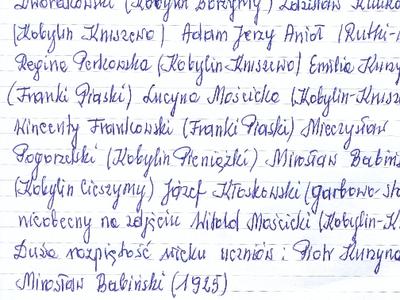 Dworakowski (Kobylin Borzymy) Zdzisław
(Kobylin Kruszewo) Adam Jerzy Anioł (Rutki-
Regina Perkowska (Kobylin-Kruszewo) Emilia
(Franki Piaski) Lucyna Mościcka (Kobylin-Krusz
Wincenty Frankowski (Franki Piaski) Mieczysław
Pogorzelski (Kobylin Pieniążki) Mirosław Babiń
(Kobylin Cieszymy) Józef Kłoskowski (Garbowo-
nieobecny na zdjęciu Witold Mościcki (Kobylin-K
Duża rozpiętość wieku uczniów: Piotr
Mirosław Babiński (1925)